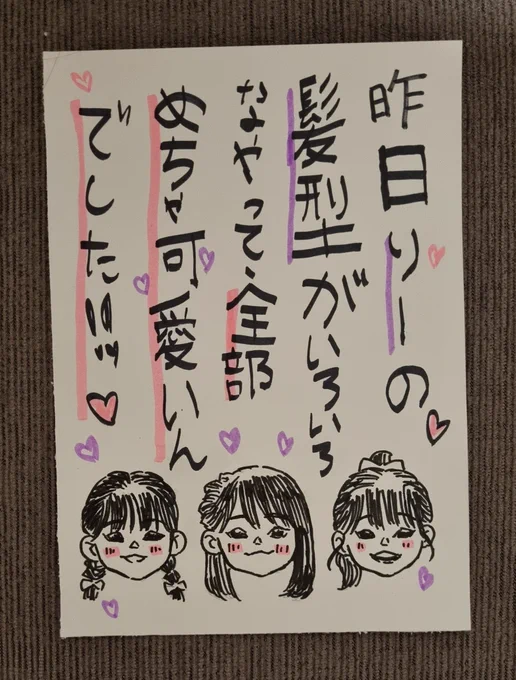 昨日りーの
髪型がいろいろ
なやって、全部
めちゃ可愛いん
でした!!!